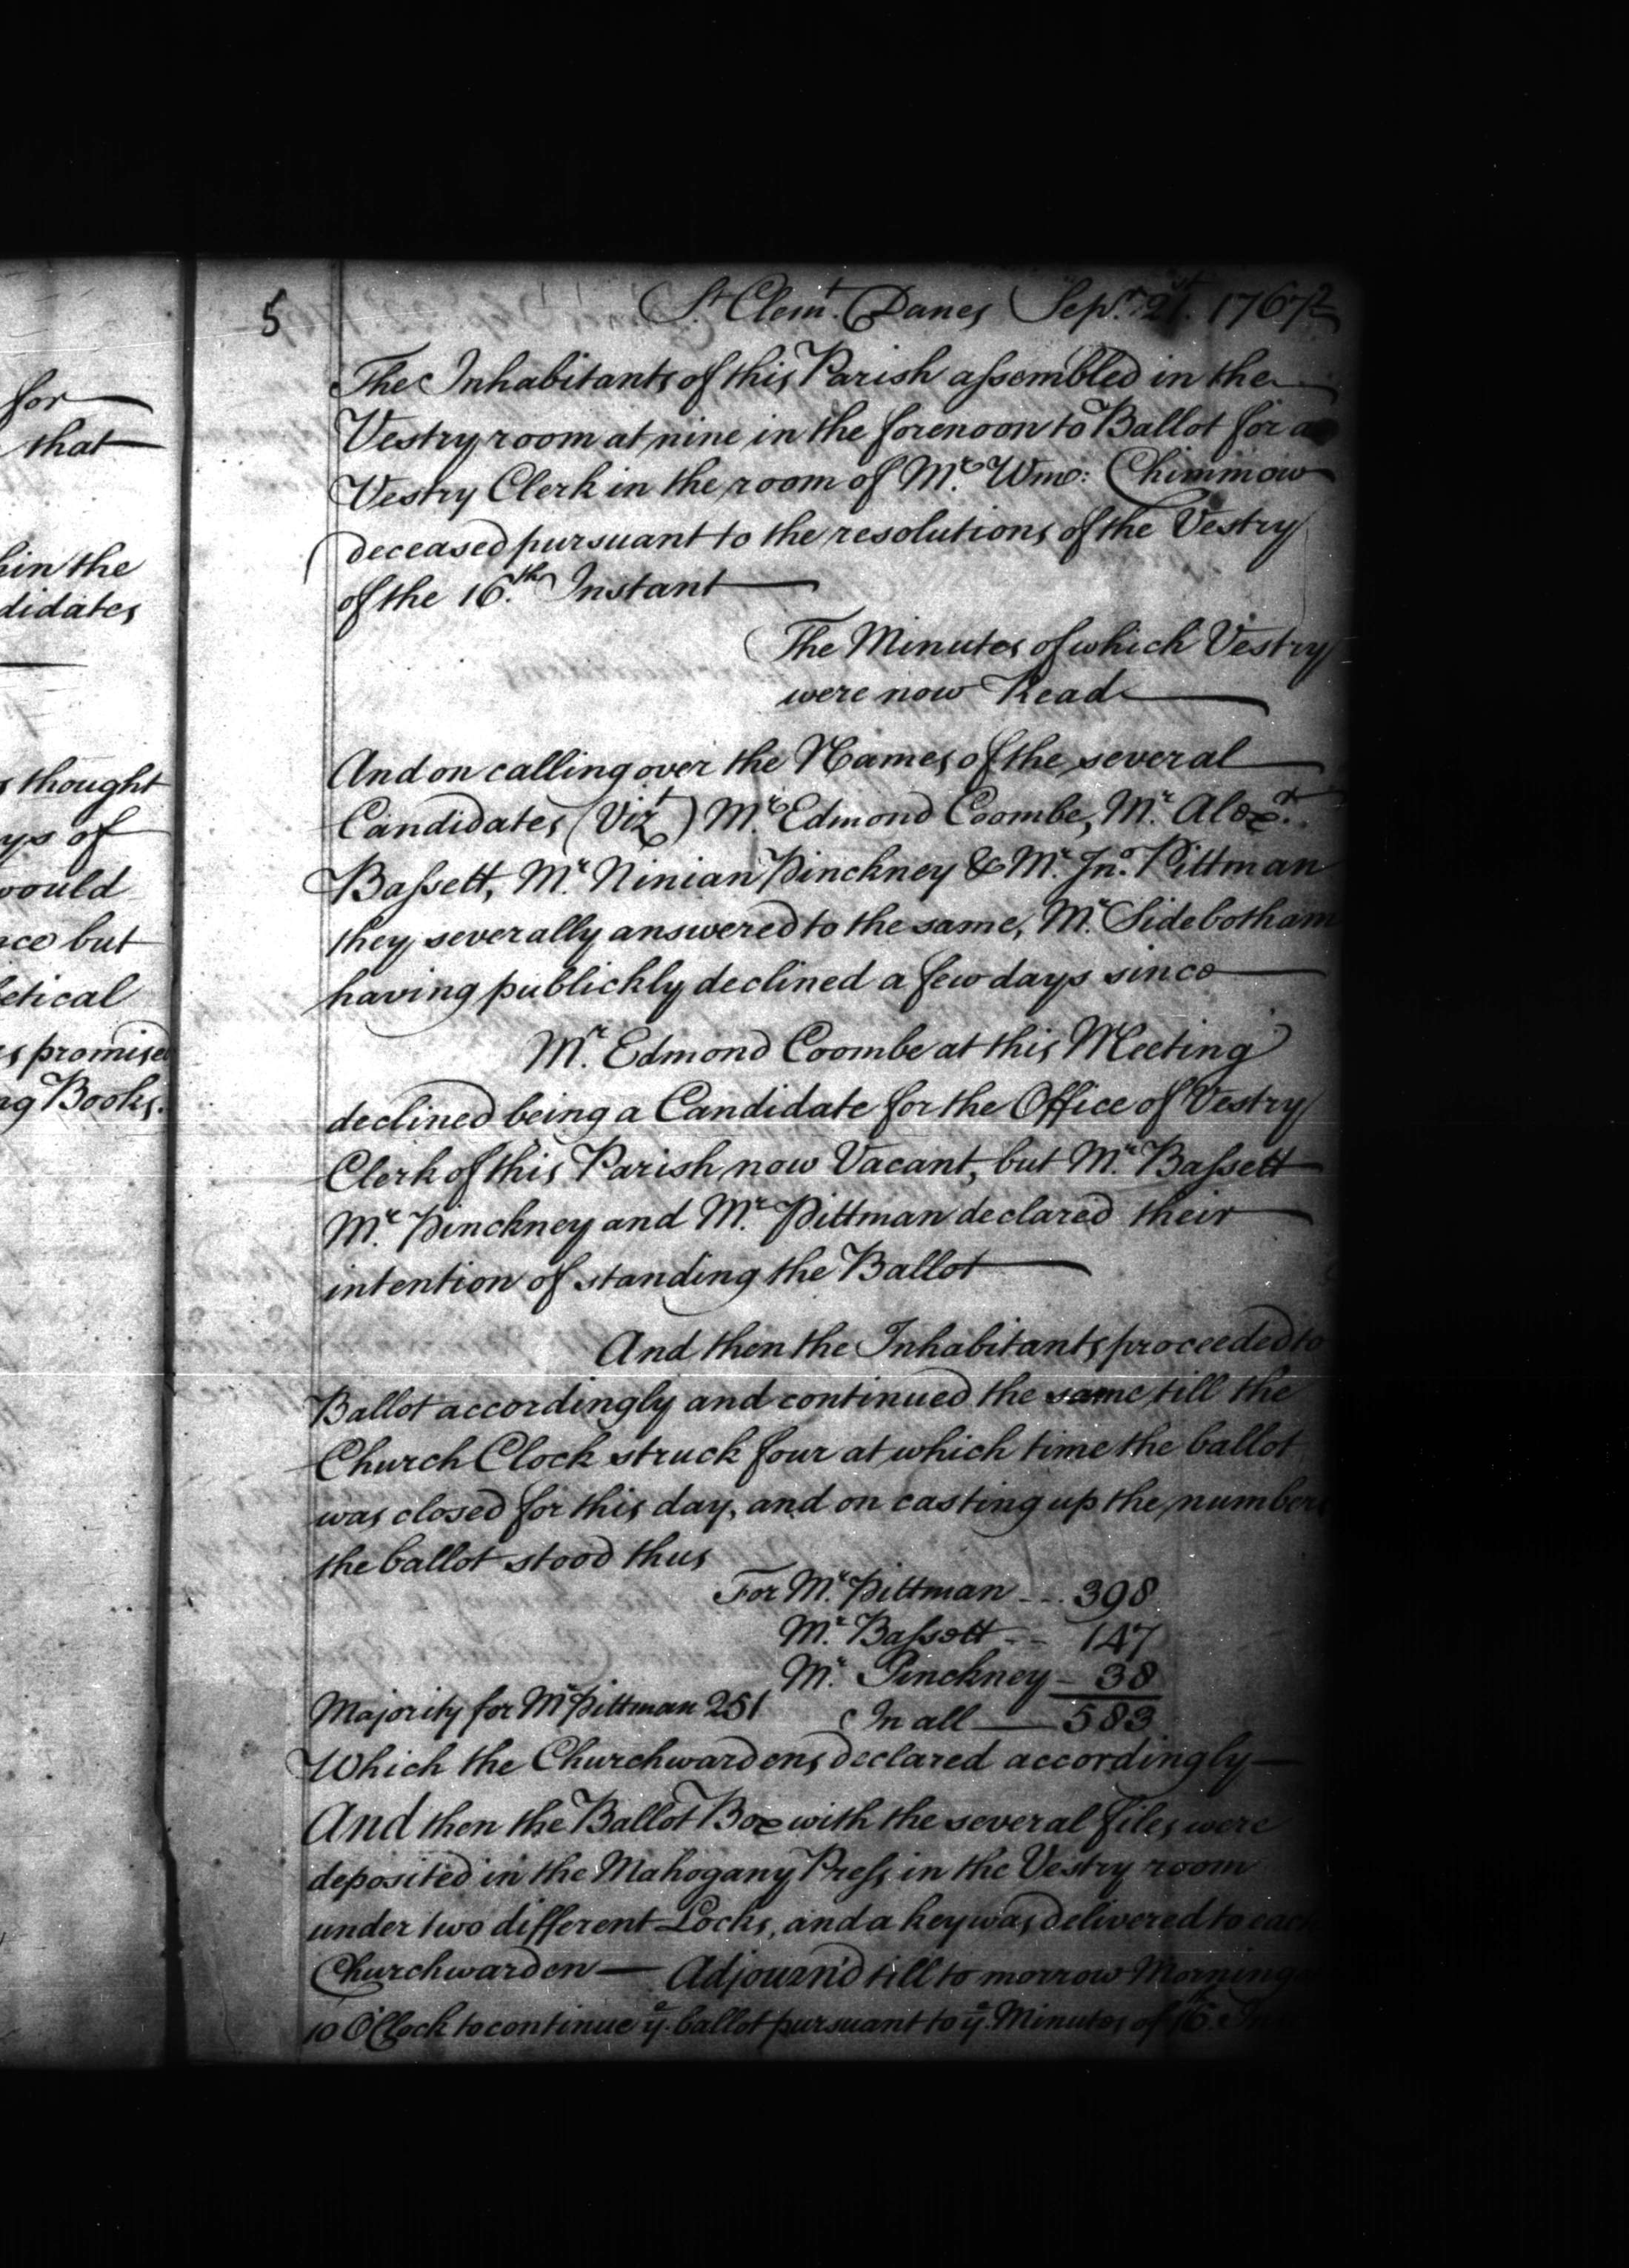 for
that
hin the
didates
s thought
ys of
would
nce but
letical
s promised
ng Books.
5
St. Clemt. Danes Sepr. 21st. 1767
The Inhabitants of this Parish assembled in the
Vestry room at nine in the forenoon to Ballot for a
Vestry Clerk in the room of Mr. Wm: Chimmow
deceased pursuant to the resolutions of the Vestry
of the 16th. Instant
The Minutes of which Vestry
were now Read
And on calling over the Names of the several
Candidates (Vizt) Mr. Edmond Coombe, Mr. Alexr.
Bassett, Mr. Ninian Pinckney & Mr. Jno. Pittman
they severally answered to the same, Mr. Sidebotham
having publickly declined a few days since
Mr. Edmond Coombe at this Meeting
declined being a Candidate for the Office of Vestry
Clerk of this Parish now Vacant, but Mr. Bassett
Mr. Pinckney and Mr. Pittman declared their
intention of standing the Ballot
And then the Inhabitants proceeded to
Ballot accordingly and continued the same till the
Church Clock struck four at which time the ballot
was closed for this day, and on casting up the numbers
the ballot stood thus
For Mr. Pittman - - - 398
Mr. Bassett - - 147
Mr. Pinckney - 38
Majority for Mr Pittman 251 In all — 583
Which the Churchwardens declared accordingly —
And then the Ballot Box with the several files were
deposited in the Mahogany Press in the Vestry room
under two different Locks, and a key was delivered to each
Churchwarden — Adjourn'd till to morrow Morning
10 O'Clock to continue ye. ballot pursuant to ye. Minutes of 16th.